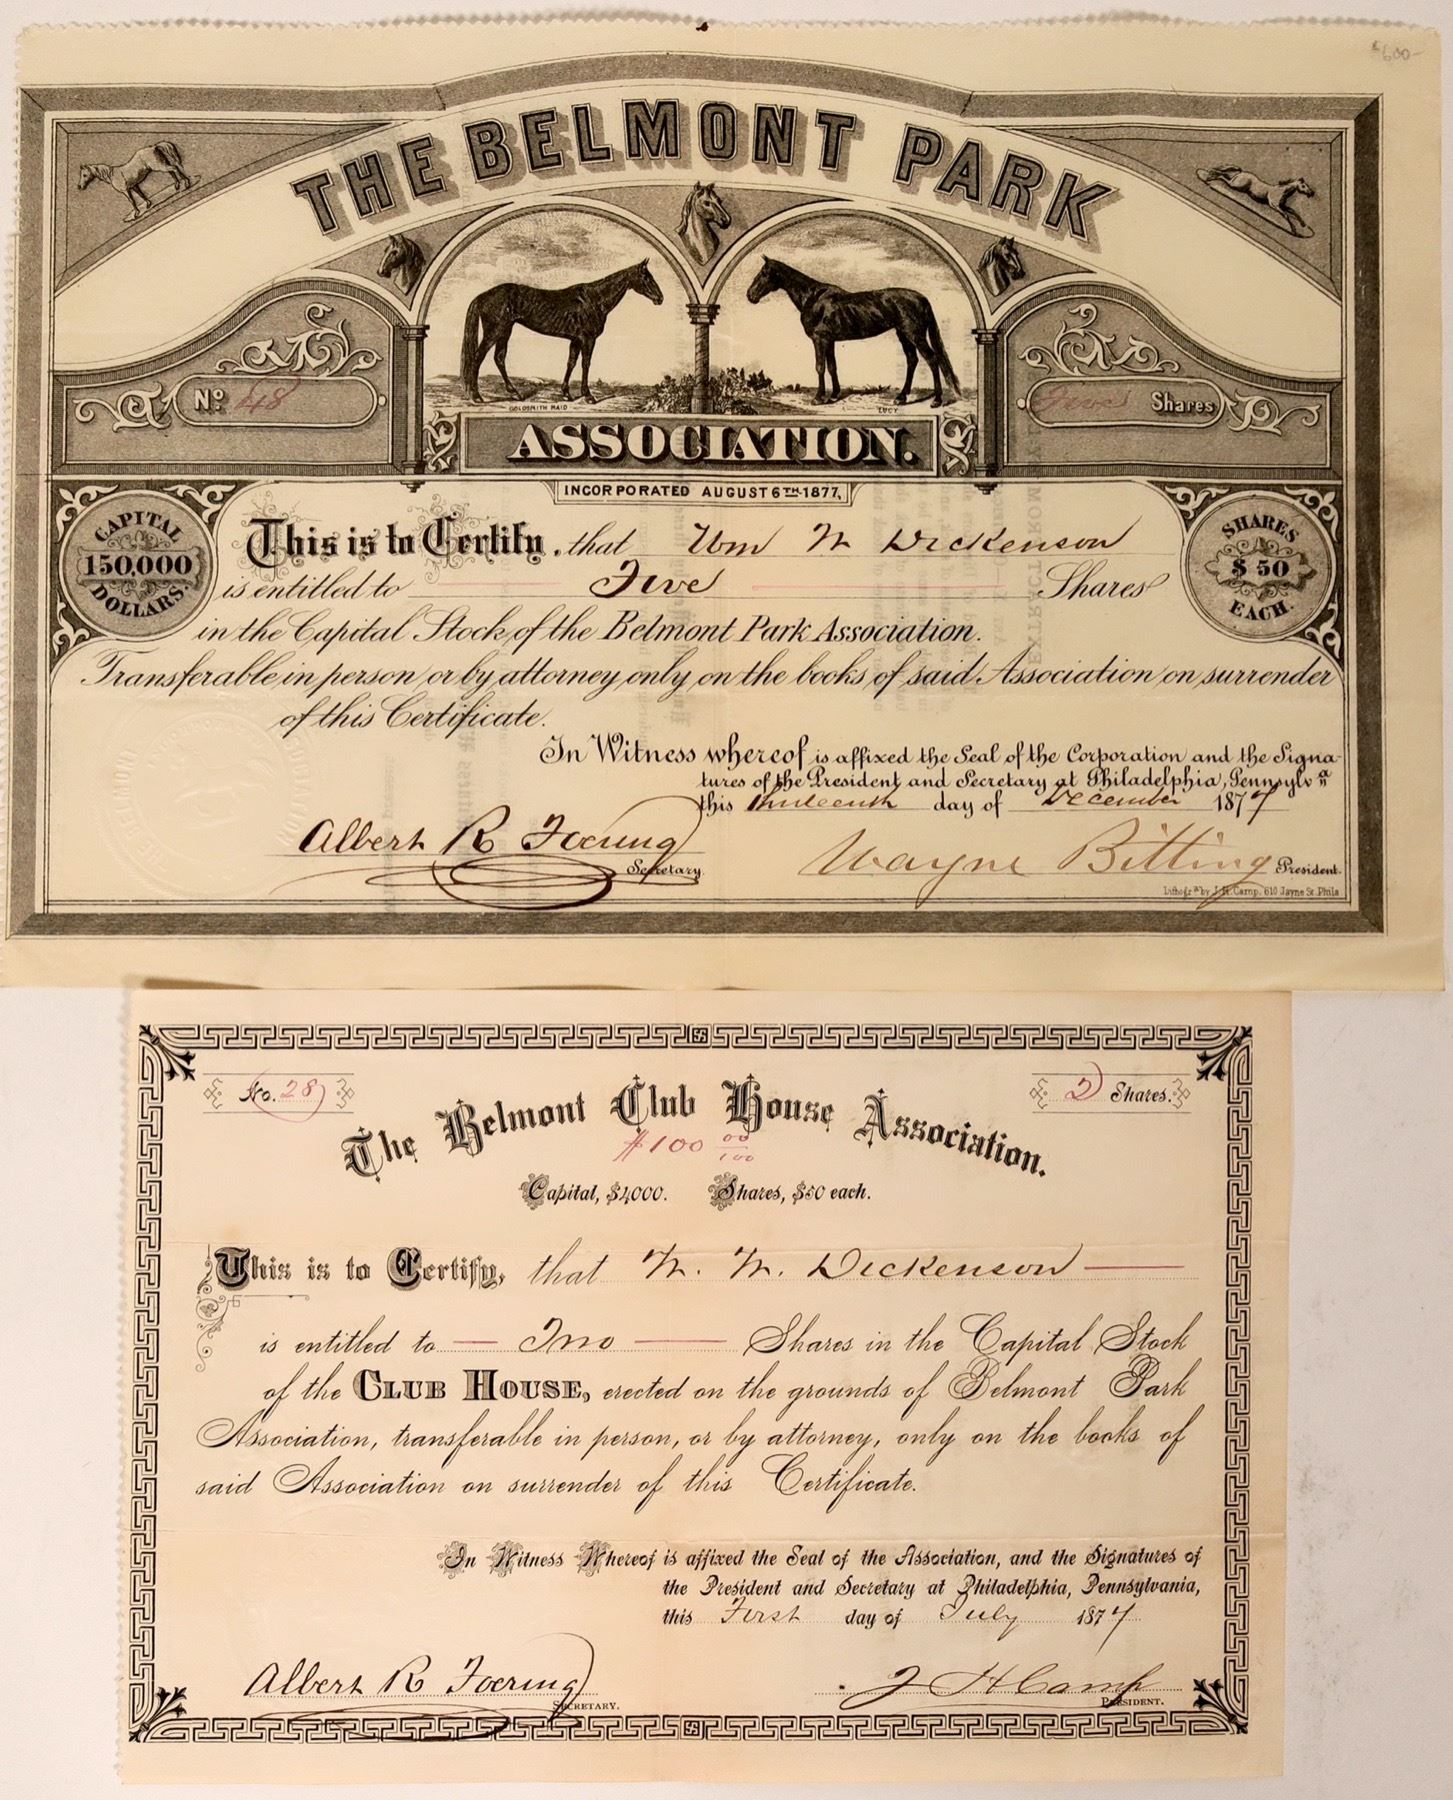 $600-
THE BELMONT PARK
No 48
Five Shares
GOLDSMITH MAID
LUCY
ASSOCIATION.
INCORPORATED AUGUST 6TH 1877,
CAPITAL
150,000
DOLLARS.
SHARES
$50
EACH.
This is to Certify, that Wm W Dickenson
is entitled to Five Shares
in the Capital Stock of the Belmont Park Association.
Transferable in person or by attorney only on the books of said Association on surrender
of this Certificate.
In Witness whereof is affixed the Seal of the Corporation and the Signa-
tures of the President and Secretary at Philadelphia, Pennsylva
this thirteenth day of December 1877
Albert R Foering Secretary.
Wayne Bitting President.
Lithogr'd by J. H. Camp. 610 Jayne St. Phila
No. 28
2 Shares.
The Belmont Club House Association.
$100 00/100
Capital, $4,000. Shares, $50 each.
This is to Certify, that W. W. Dickenson
is entitled to Two Shares in the Capital Stock
of the CLUB HOUSE, erected on the grounds of Belmont Park
Association, transferable in person, or by attorney, only on the books of
said Association on surrender of this Certificate.
In Witness Whereof is affixed the Seal of the Association, and the Signatures of
the President and Secretary at Philadelphia, Pennsylvania,
this First day of July 1877
Albert R Foering SECRETARY.
J H Camp PRESIDENT.